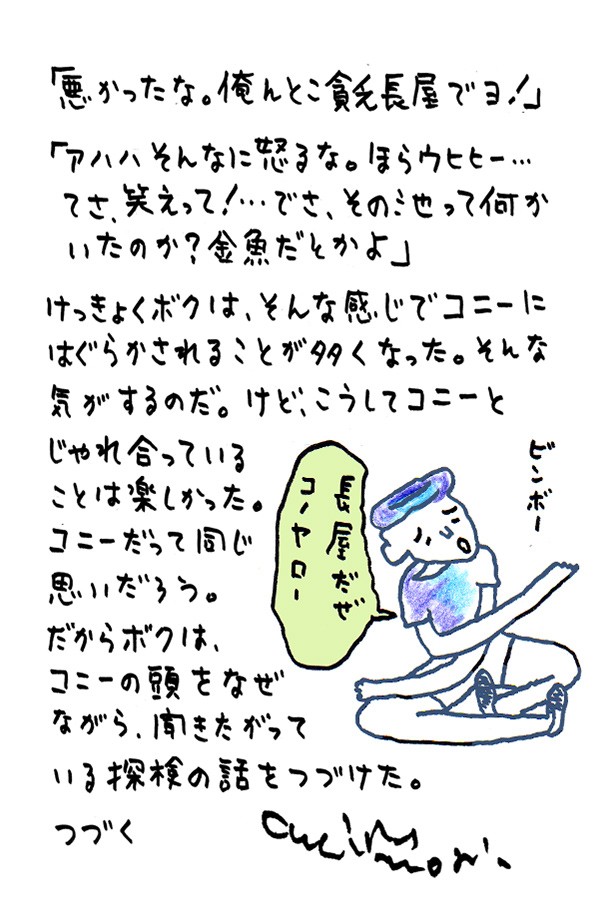 「悪かったな。俺んとこ貧乏長屋でヨ!」
「アハハそんなに怒るな。ほらウヒヒー…
てさ、笑えって!…でさ、その池って何か
いたのか?金魚だとかよ」
けっきょくボクは、そんな感じでコニーに
はぐらかされることが多くなった。そんな
気がするのだ。けど、こうしてコニーと
じゃれ合っている
ことは楽しかった。
コニーだって同じ
思いだろう。
だからボクは、
コニーの頭をなぜ
ながら、聞きたがって
いる探検の話をつづけた。
つづく
ビンボー
長屋だぜ
コノヤロー